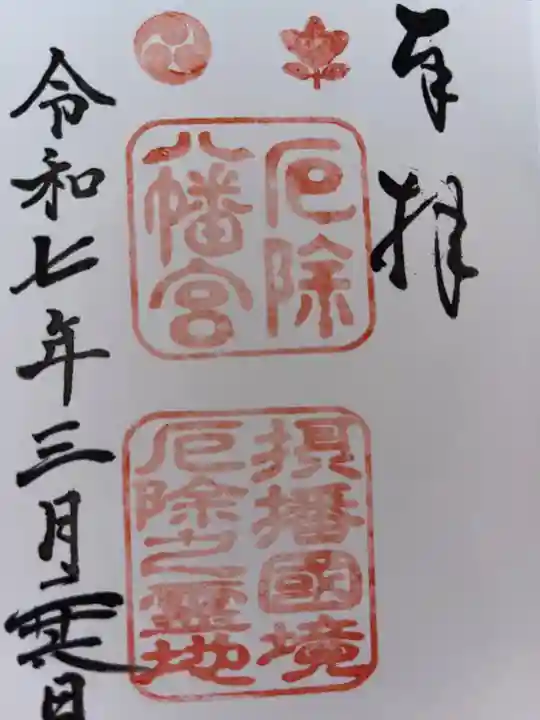 奉拝
厄除
八幡宮
摂播國境
厄除之霊地
令和七年三月日